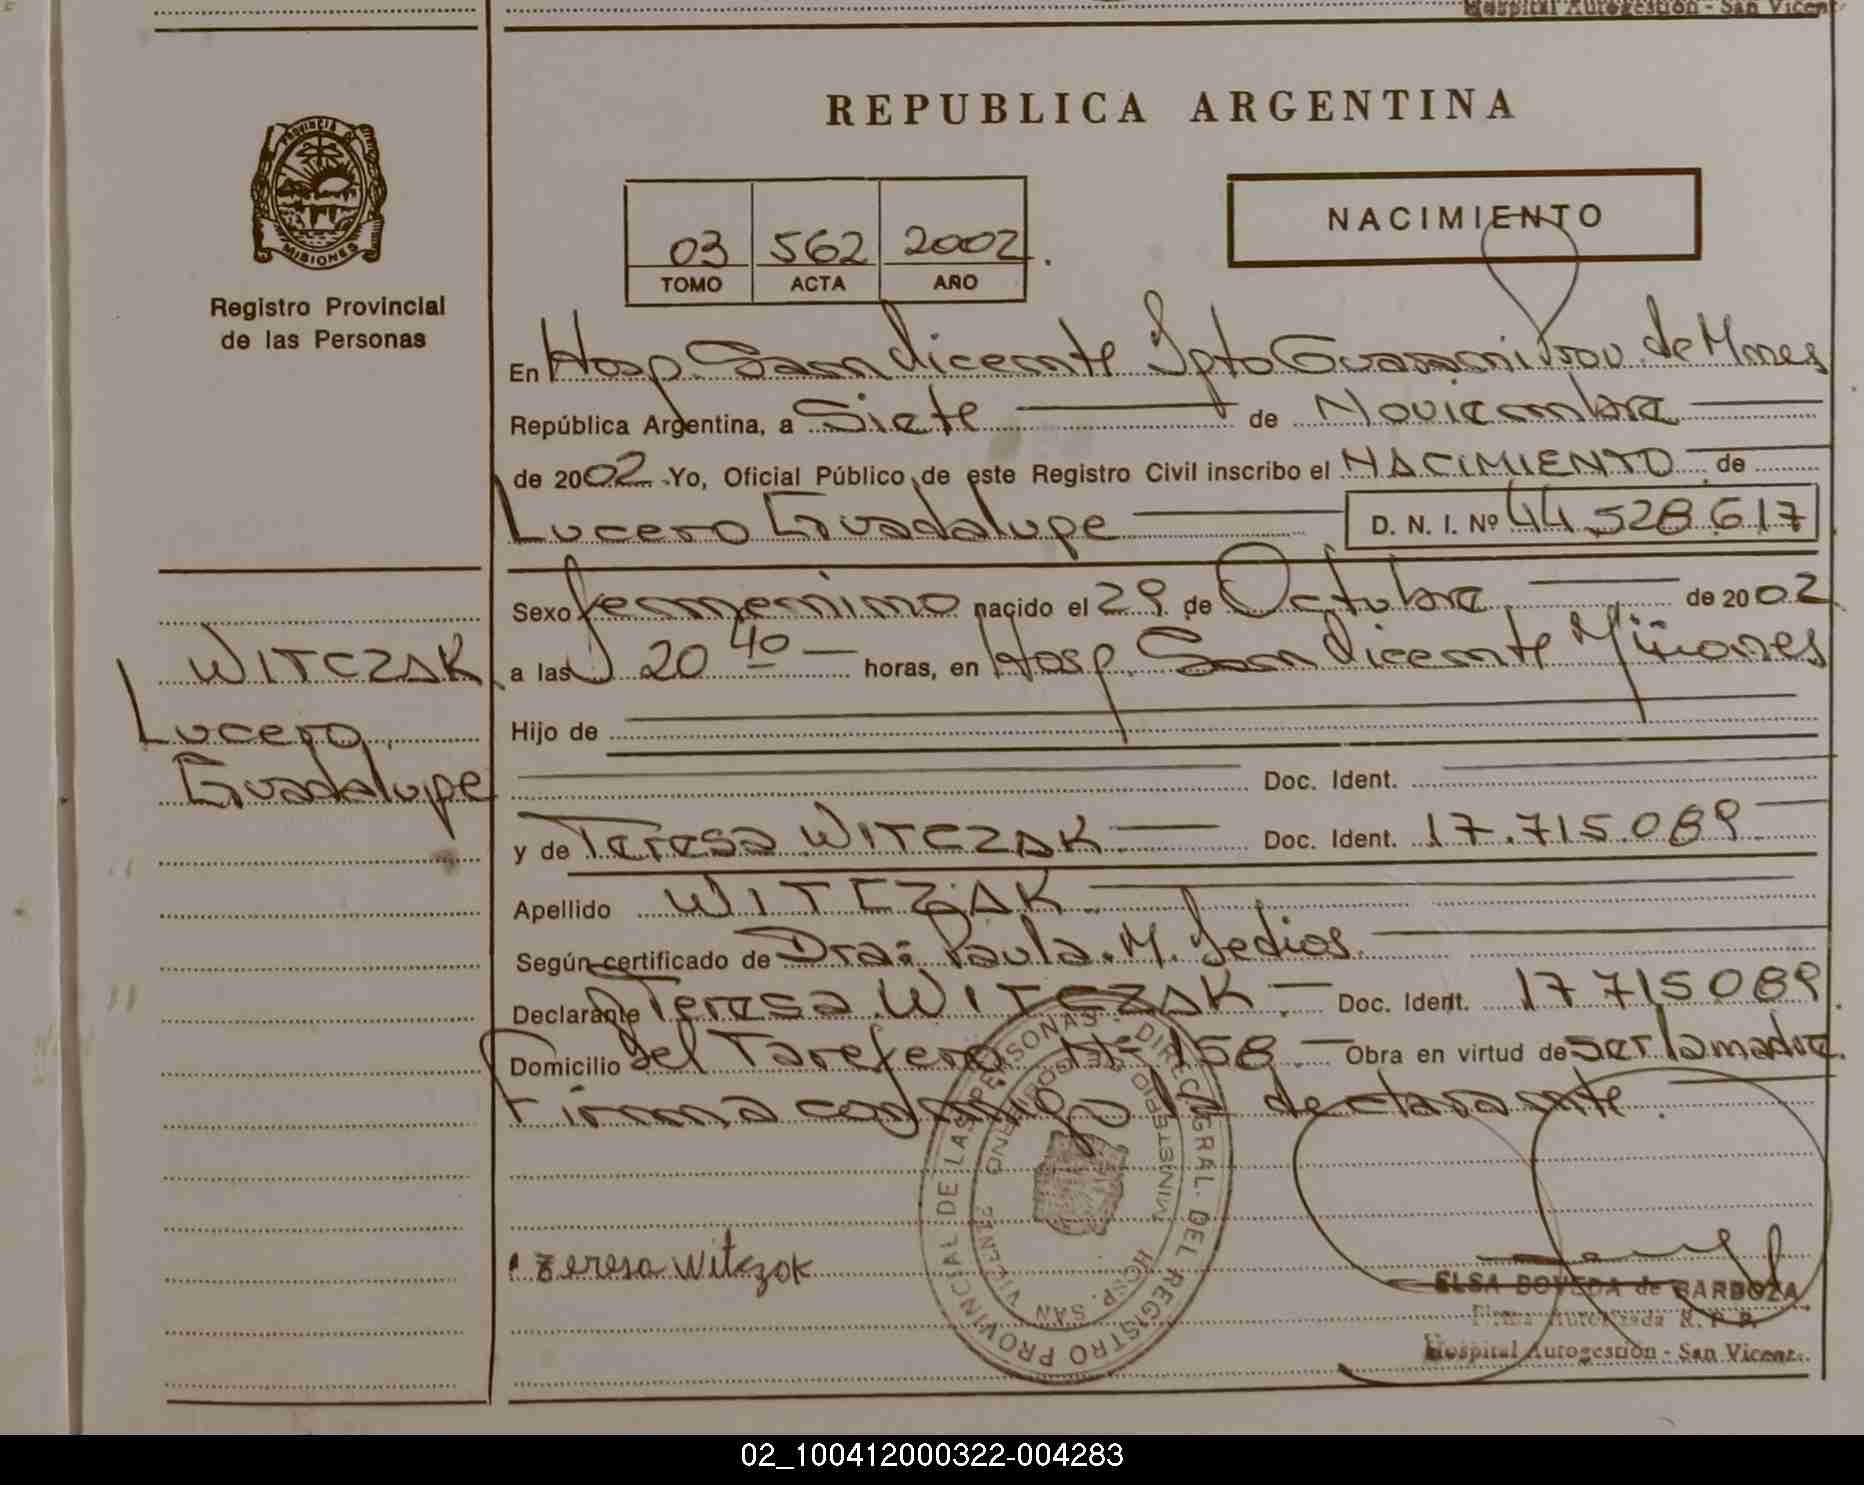 Hospital Autogestión - San Vicent
REPUBLICA ARGENTINA
PROVINCIA DE
MISIONES
Registro Provincial
de las Personas
03 562 2002.
TOMO ACTA AÑO
NACIMIENTO
En Hosp. San Vicente Dpto Guarani Prov. de Mnes
República Argentina, a Siete de Noviembre
de 2002 Yo, Oficial Público de este Registro Civil inscribo el NACIMIENTO de
Lucero Guadalupe D. N. I. Nº 44.528.617
Sexo femenino nacido el 29 de Octubre de 2002
a las 20 40 horas, en Hosp. San Vicente Misiones
Hijo de
Doc. Ident.
y de Teresa WITCZAK Doc. Ident. 17.715.089
Apellido WITCZAK
Según certificado de Dra: Paula M. Sedios
Declarante Teresa WITCZAK Doc. Ident. 17 715 089
Domicilio del Tarefero Nº 158 Obra en virtud de ser la madre.
Firma conmigo la declarante.
WITCZAK
Lucero
Guadalupe
teresa witczak
DIREC. GRAL. DEL REGISTRO PROVINCIAL DE LAS PERSONAS
MINISTERIO DE GOBIERNO
HOSP. SAN VICENTE
ELSA DOVEDA de BARBOZA
Firma Autorizada R. P. P.
Hospital Autogestión - San Vicent.
02_100412000322-004283